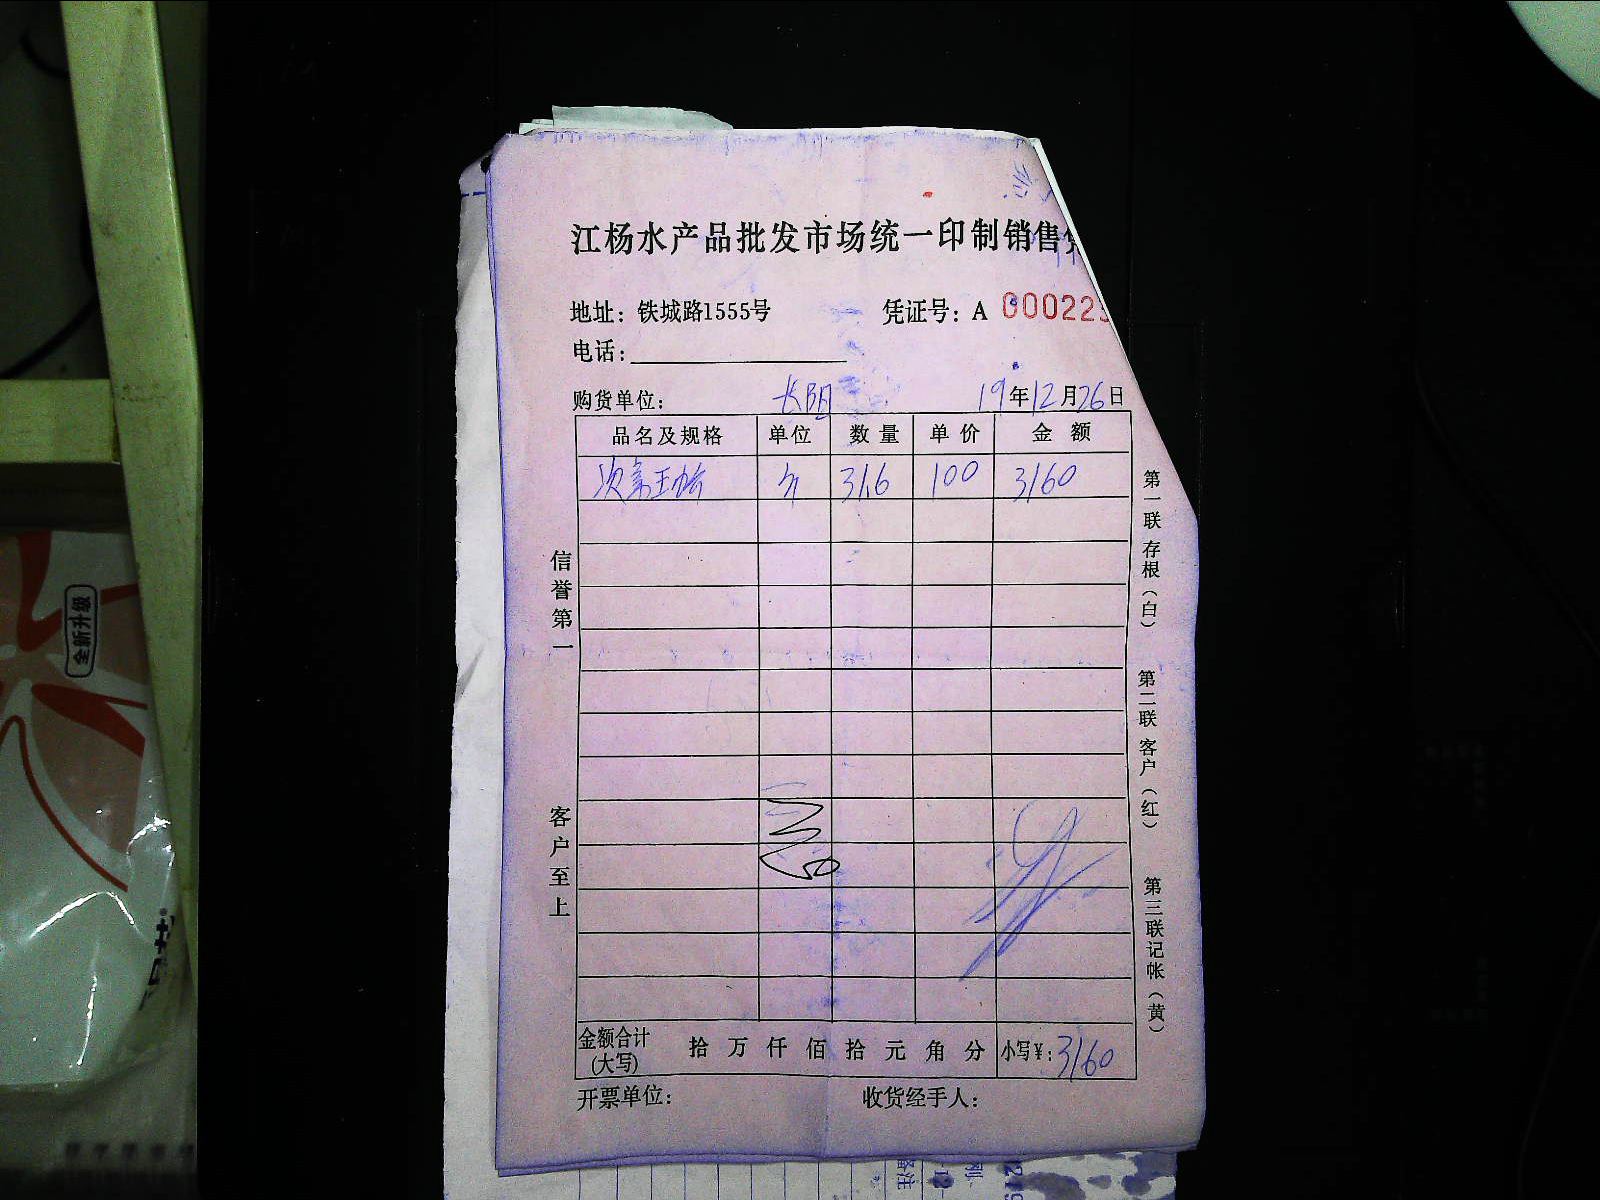 江杨水产品批发市场统一印制销售
地址：铁城路1555号 凭证号：A 000223
电话：
购货单位：长阳 19年12月26日
品名及规格 单位 数量 单价 金额
斤 31.6 100 3160
信誉第一
客户至上
第一联 存根（白）
第二联 客户（红）
第三联 记帐（黄）
金额合计(大写) 拾 万 仟 佰 拾 元 角 分 小写¥：3160
开票单位： 收货经手人：
全新升级
备注